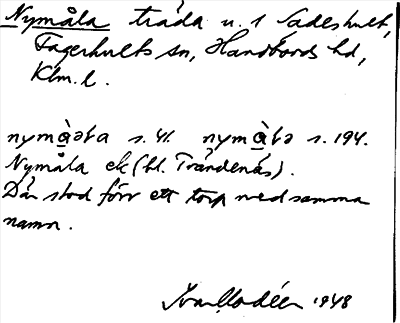 Nymåla träda u. 1 Sadeshult,
Fagerhults sn, Handbörds hd,
Klm. l.
s. 41. s. 194.
Nymåla ek (bl. Trändenäs).
Där stod förr ett torp med samma
namn.
Ivar Modéer 1948